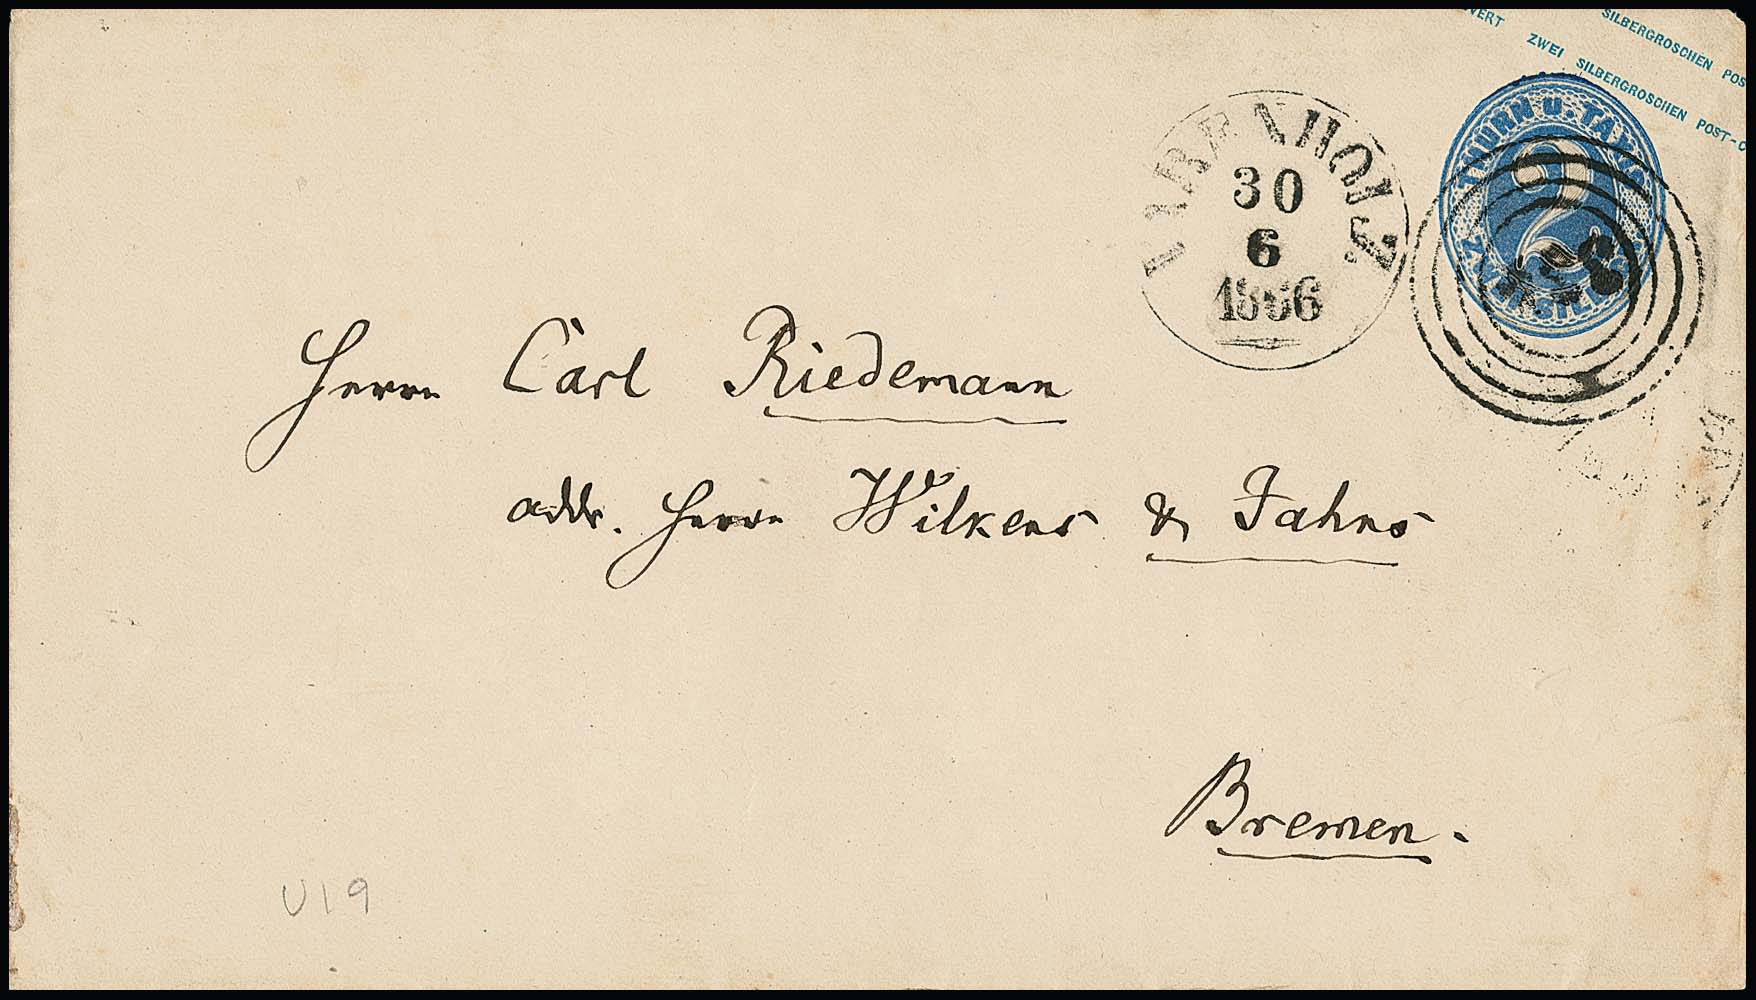 WERT ZWEI SILBERGROSCHEN POST-C
SILBERGROSCHEN POS
THURN u. TAXIS
2
VARENHOLZ
30
6
1866
Herrn Carl Riedemann
addr. Herrn Wilkens & Jahns
Bremen.
U19